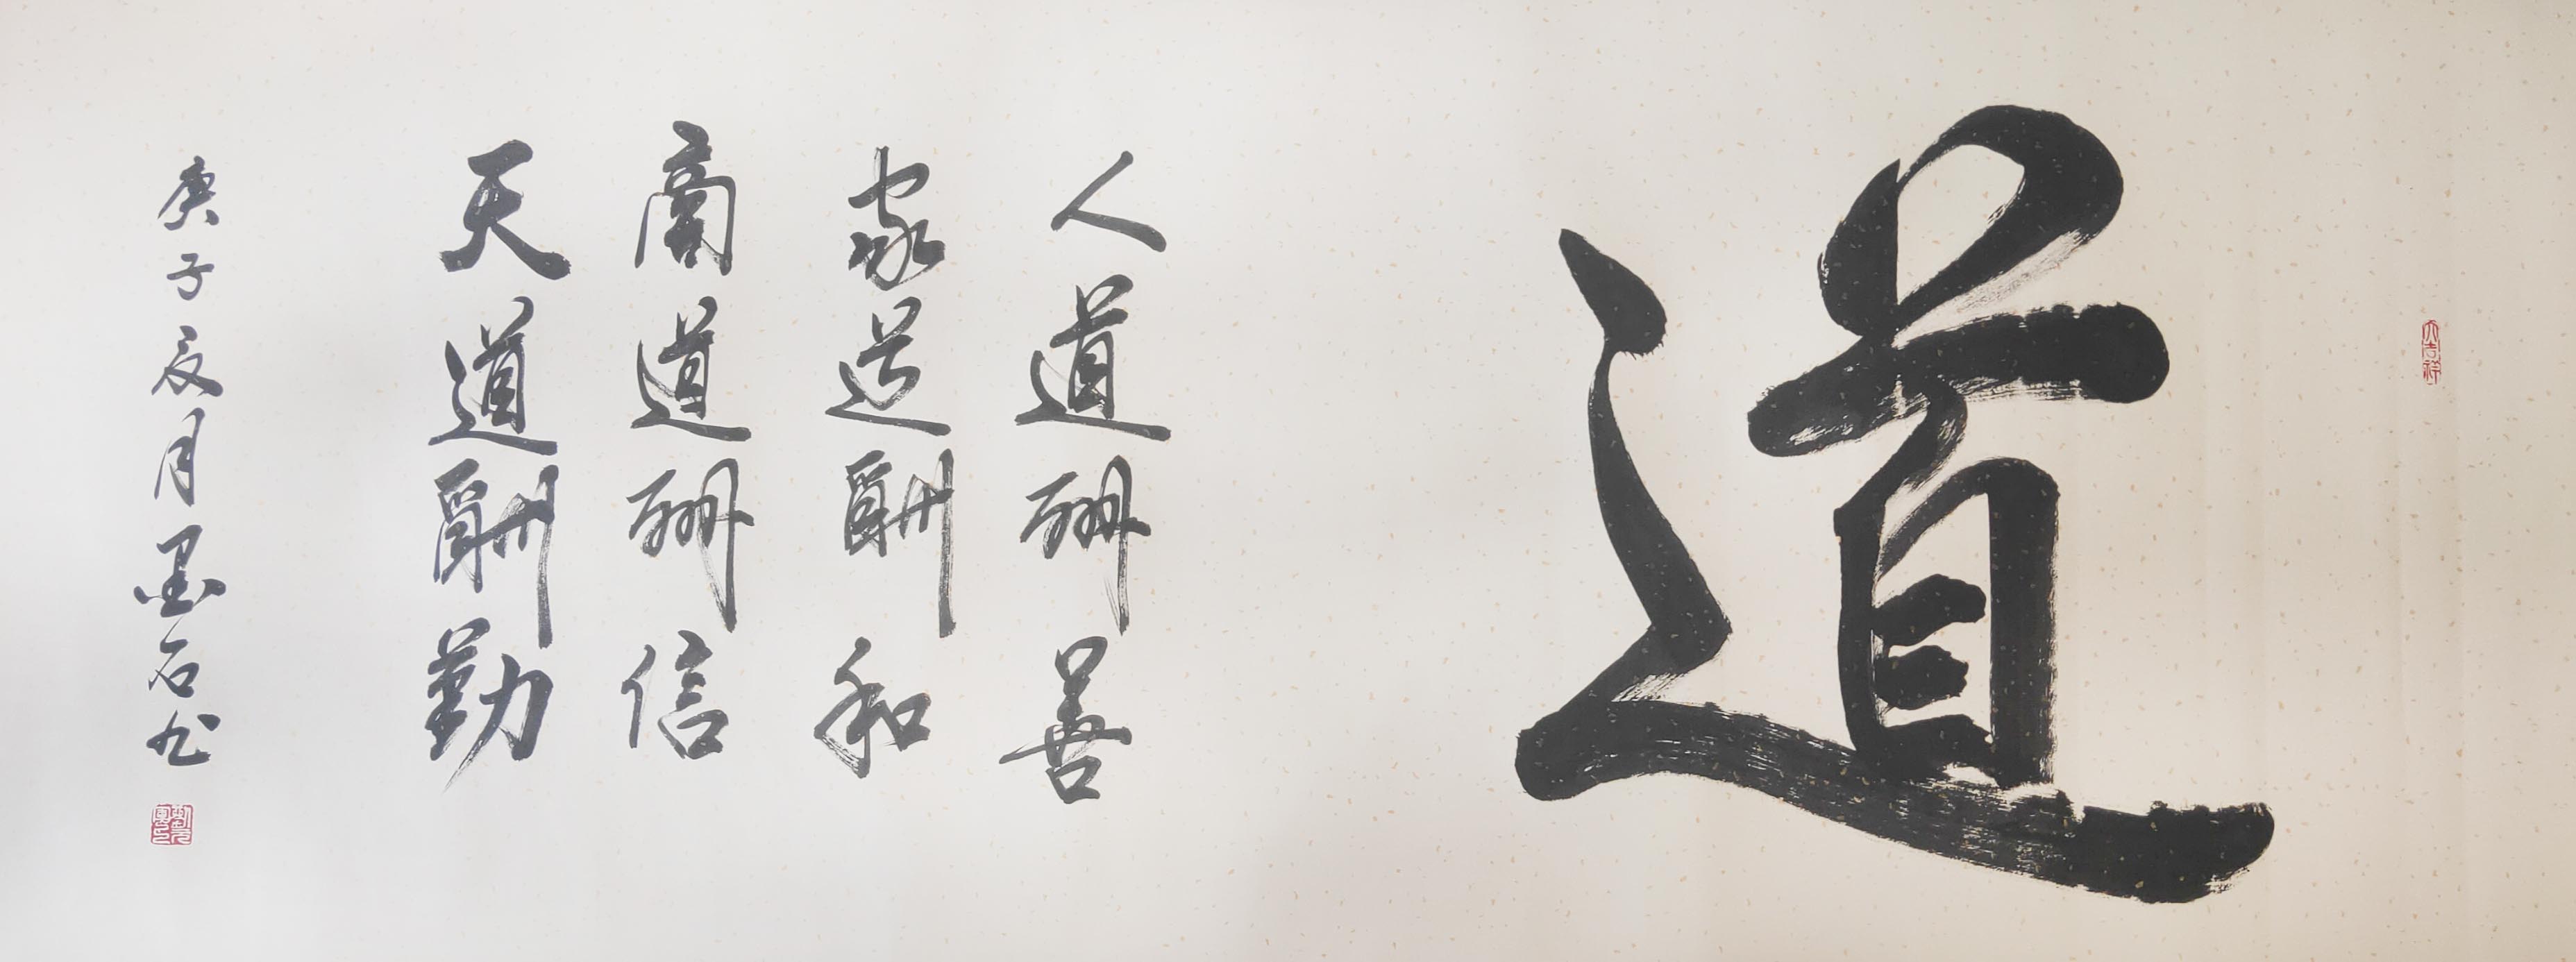 道
人道酬善
家道酬和
商道酬信
天道酬勤
庚子辰月墨石书
大吉祥